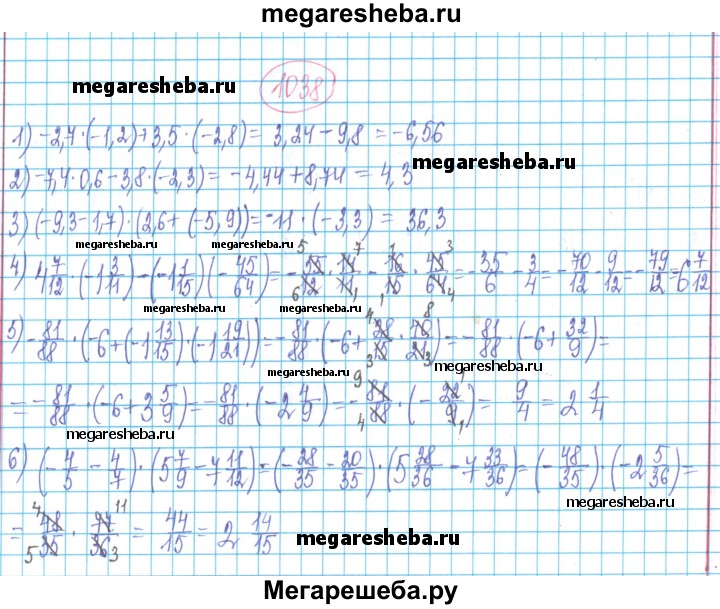 megaresheba.ru
megaresheba.ru
1038
1) -2,7·(-1,2)+3,5·(-2,8)= 3,24-9,8 =-6,56
megaresheba.ru
2) -7,4·0,6-3,8·(-2,3)= -4,44+8,74=4,3
3) (-9,3-1,7)·(2,6+(-5,9))=-11·(-3,3)= 36,3
megaresheba.ru megaresheba.ru
4) 4 7/12·(-1 3/11)-(-1 1/15)(-45/64)=-55/12·14/11-16/15·45/64=-35/6-3/4=-70/12-9/12=-79/12=6 7/12
megaresheba.ru megaresheba.ru
5) -81/88·(-6+(-1 13/15)·(-1 19/21))=-81/88·(-6+28/15·40/21)=-81/88·(-6+32/9)=
=-81/88·(-6+3 5/9)=-81/88·(-2 4/9)=-81/88·(-22/9)= 9/4=2 1/4
megaresheba.ru
6) (-4/5-4/7)·(5 7/9-7 11/12)=(-28/35-20/35)·(5 28/36-7 33/36)=(-48/35)·(-2 5/36)=
megaresheba.ru
=48/35·77/36= 44/15=2 14/15
megaresheba.ru
Мегарешеба.ру